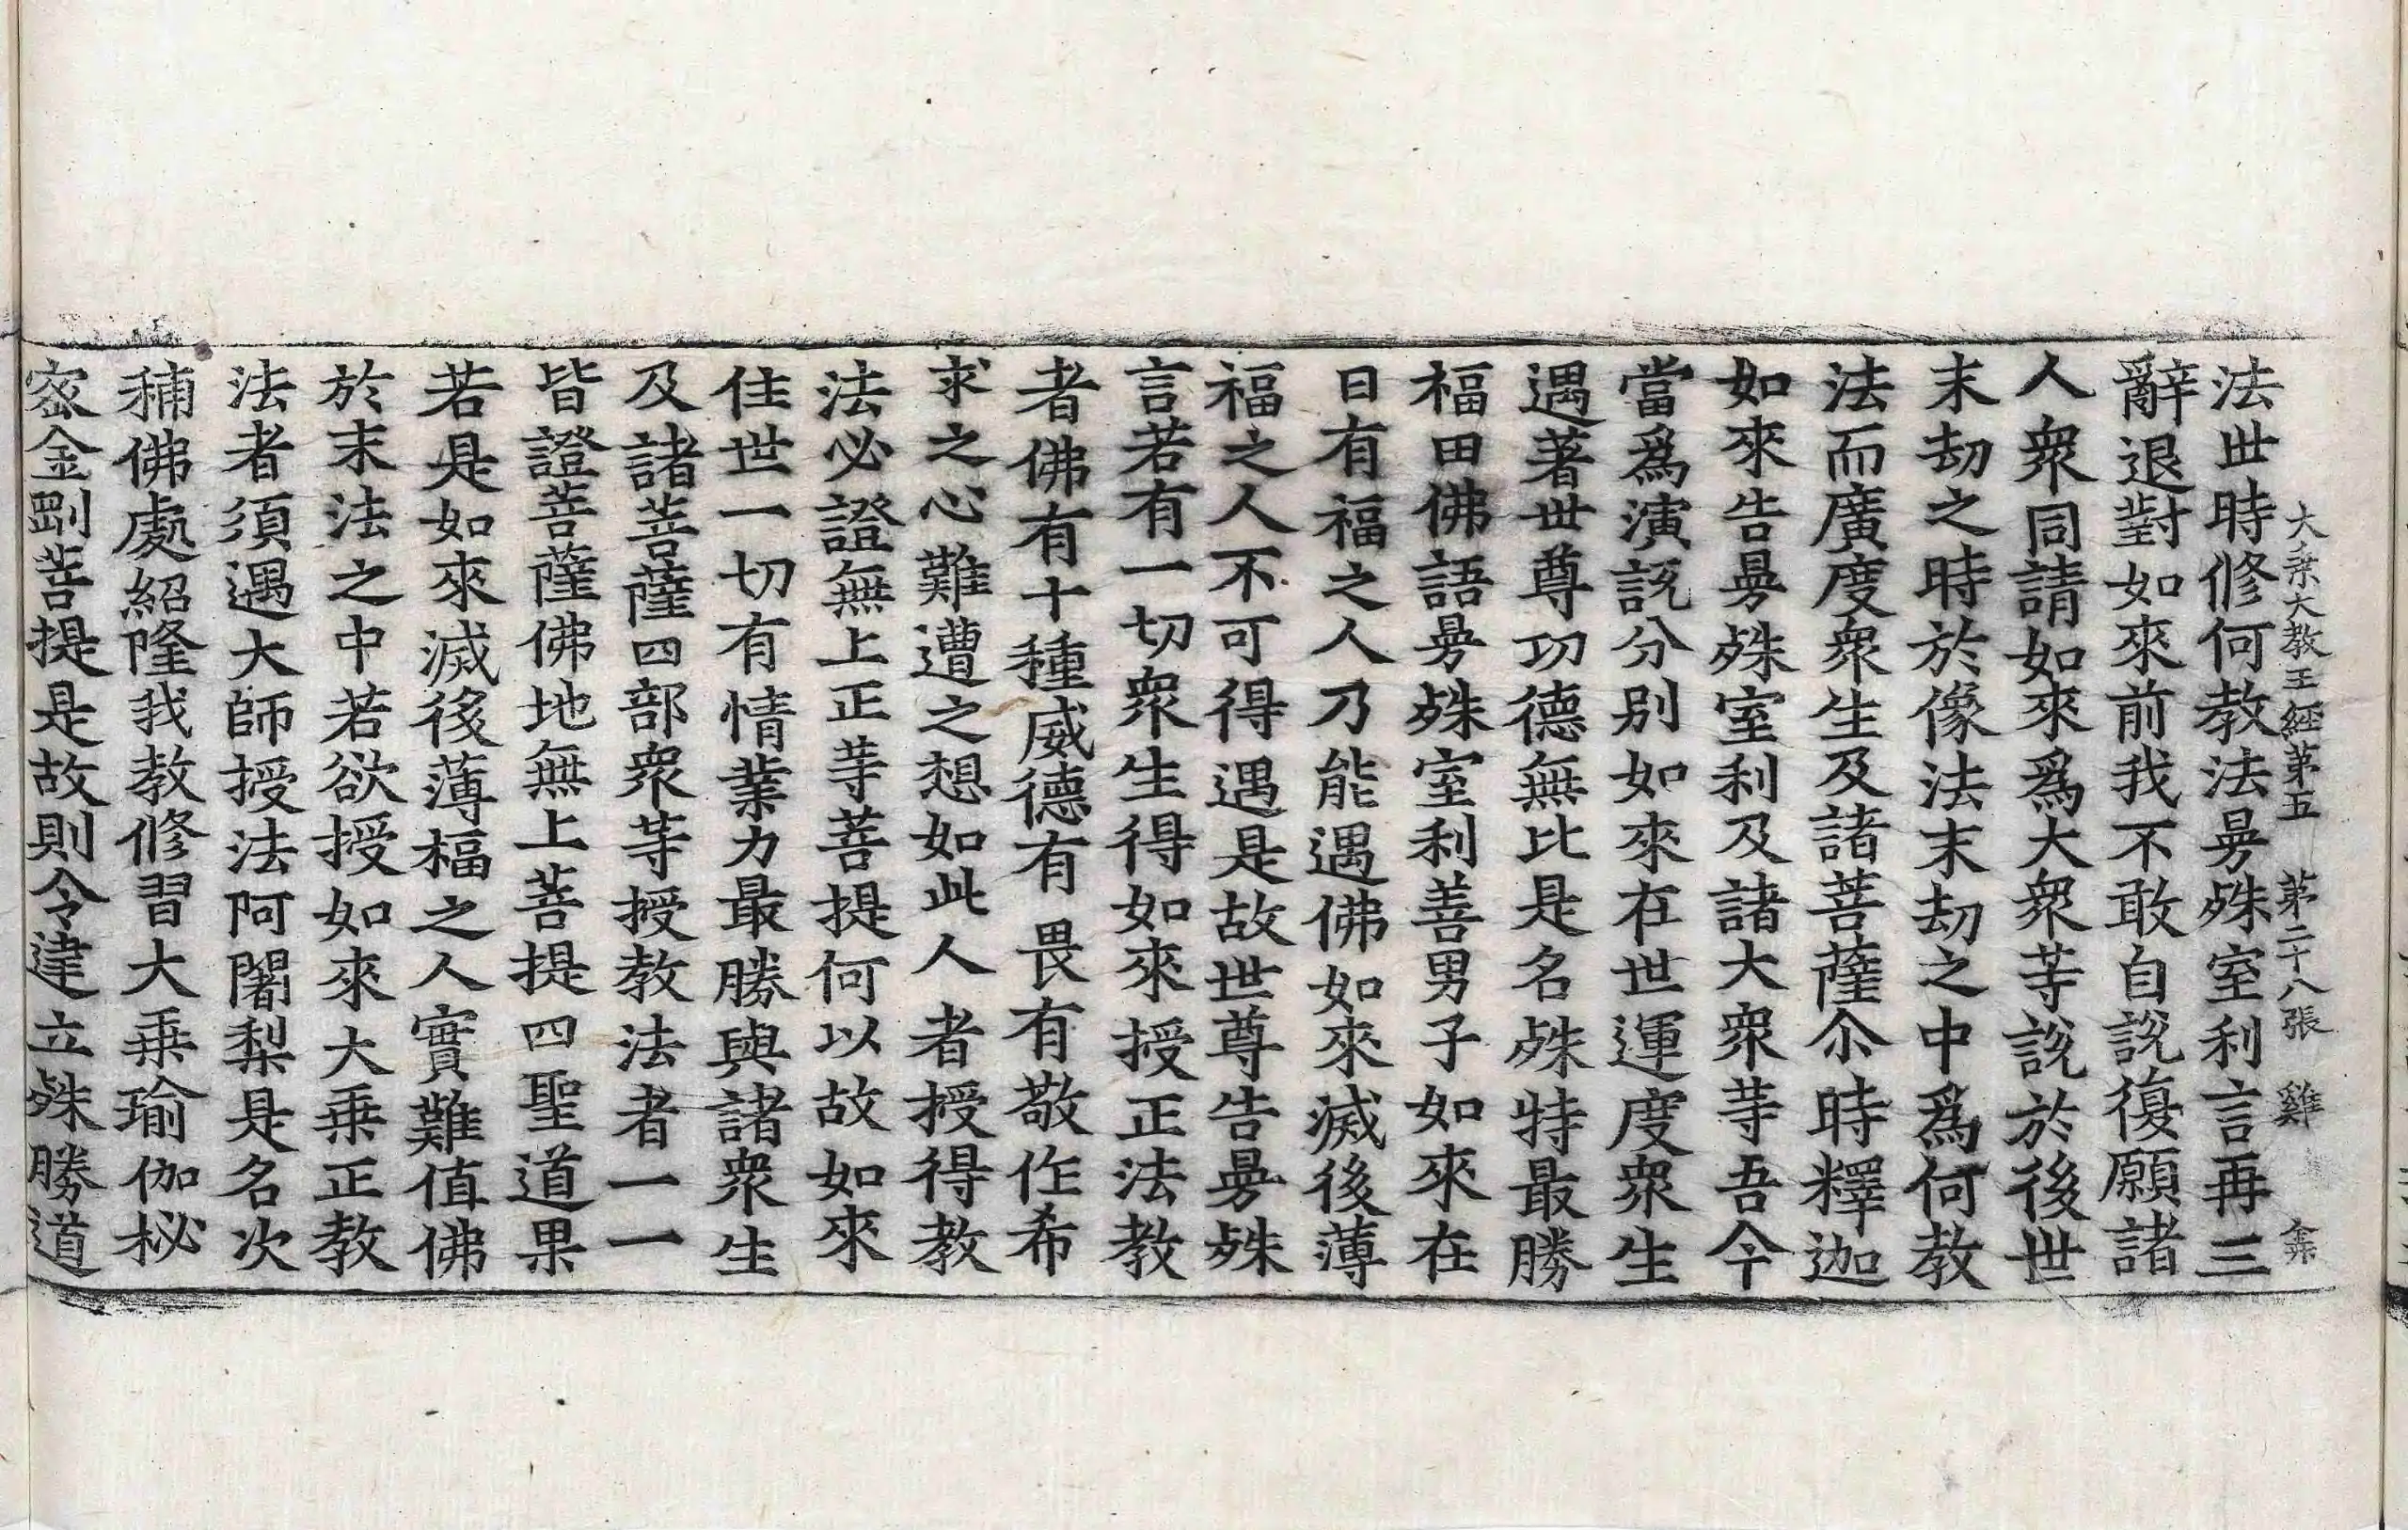 大乗大教王經苐五　苐二十八張　雞　㑹
法世時修何教法㬅殊室利言再三
辭退對如來前我不敢自說復願諸
人衆同請如來爲大衆䓁說於後世
末刼之時於像法末刼之中爲何教
法而廣度衆生及諸菩薩尒時釋迦
如來告㬅殊室利及諸大衆䓁吾今
當爲演說分别如來在世運度衆生
遇著世尊功德無比是名殊特最勝
福田佛語㬅殊室利善男子如來在
日有福之人乃能遇佛如來滅後薄
福之人不可得遇是故世尊告㬅殊
言若有一切衆生得如來授正法教
者佛有十種威德有畏有敬作希
求之心難遭之想如此人者授得教
法必證無上正䓁菩提何以故如來
住世一切有情業力最勝與諸衆生
及諸菩薩四部衆䓁授教法者一一
皆證菩薩佛地無上菩提四聖道果
若是如來滅後薄福之人實難值佛
於末法之中若欲授如來大乗正教
法者須遇大師授法阿闍梨是名次
補佛處紹隆我教修習大乗瑜伽秘
密金剛菩提是故則令建立殊勝道